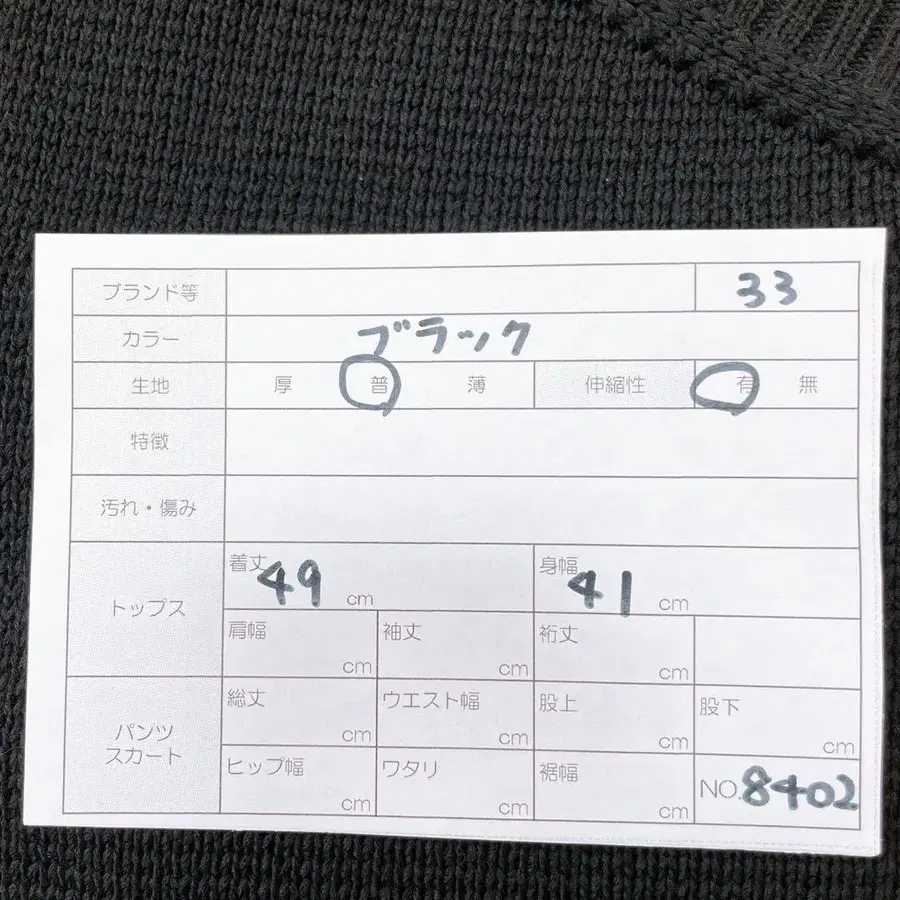 ブランド等 33
カラー ブラック
生地 厚 普 薄 伸縮性 有 無
特徴
汚れ・傷み
トップス 着丈 49 cm 身幅 41 cm
肩幅 cm 袖丈 cm 裄丈 cm
パンツ スカート 総丈 cm ウエスト幅 cm 股上 cm 股下 cm
ヒップ幅 cm ワタリ cm 裾幅 cm NO.8402